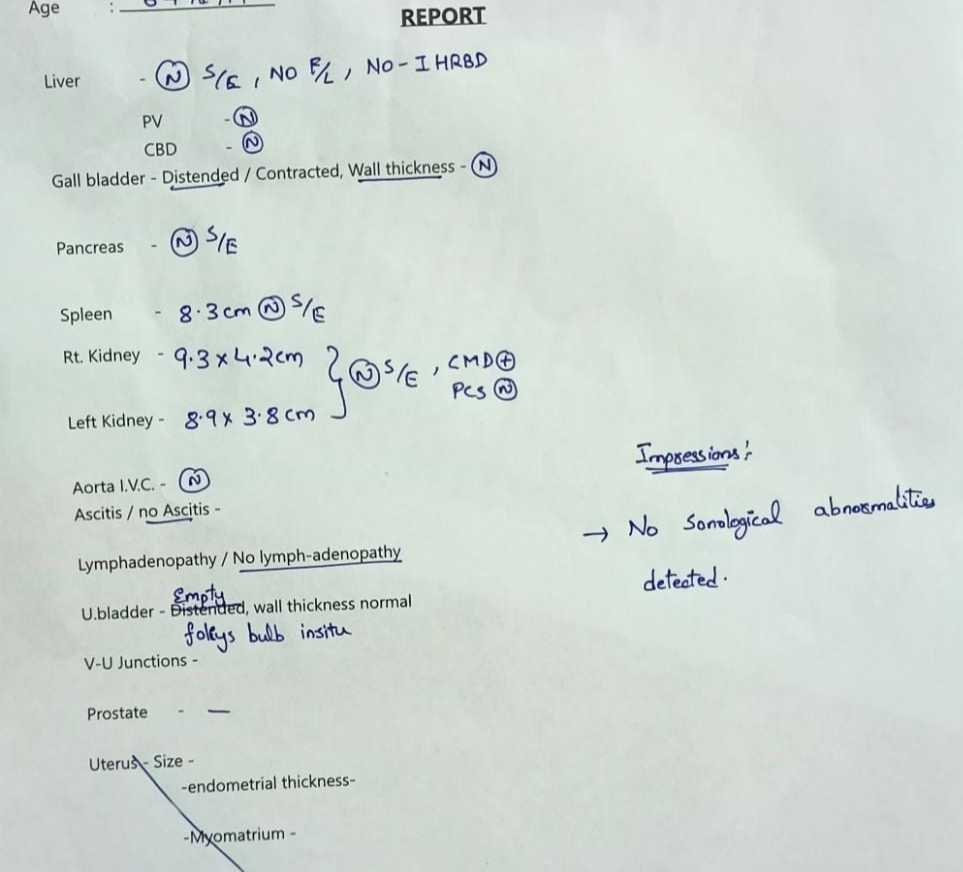 Age :
REPORT
Liver - Ⓝ S/E, NO F/L, NO-IHRBD
PV - Ⓝ
CBD - Ⓝ
Gall bladder - Distended / Contracted, Wall thickness - Ⓝ
Pancreas - Ⓝ S/E
Spleen - 8.3cm Ⓝ S/E
Rt. Kidney - 9.3 x 4.2cm } Ⓝ S/E, CMD⊕
PCS Ⓝ
Left Kidney - 8.9 x 3.8cm
Aorta I.V.C. - Ⓝ
Ascitis / no Ascitis -
Lymphadenopathy / No lymph-adenopathy
Empty
U.bladder - Distended, wall thickness normal
foleys bulb insitu
V-U Junctions -
Prostate - —
Uterus - Size -
-endometrial thickness-
-Myomatrium -
Impressions:
→ No Sonological abnormalities
detected.